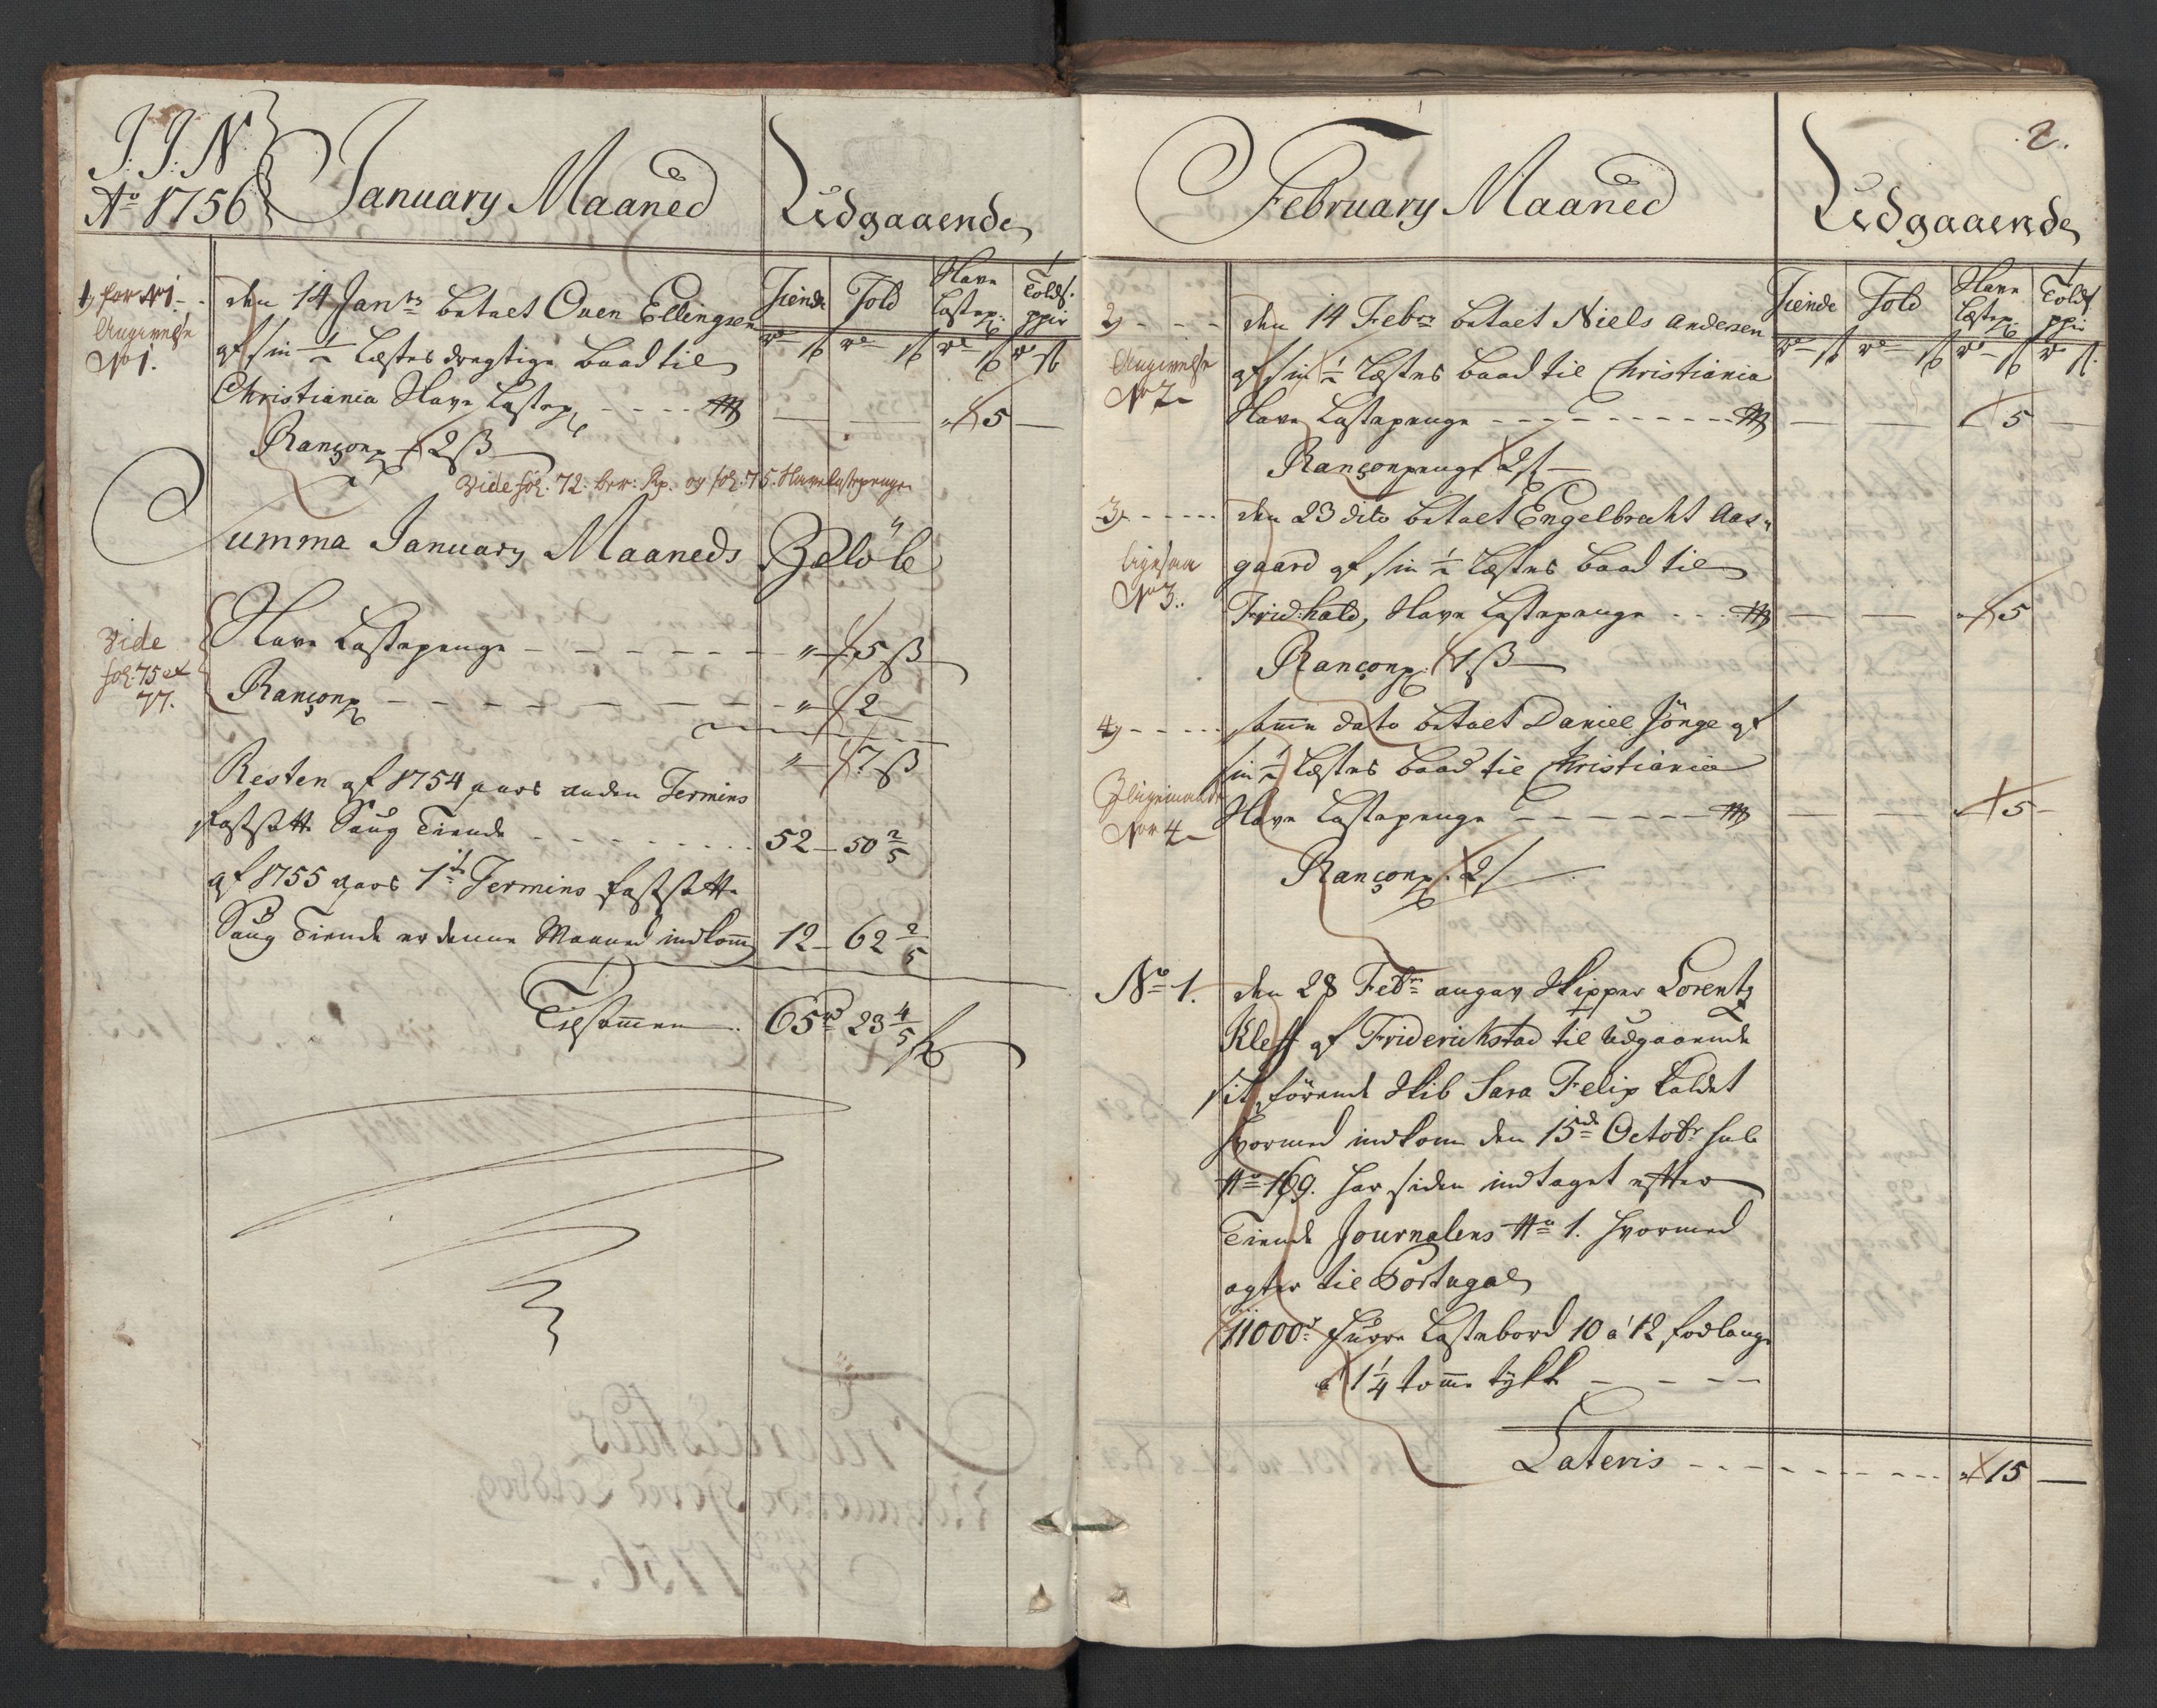 J. J. N.
Ao 1756
January Maaned
Udgaaende
Tiende
Told
Havne Lastep:
Toldf. ppir
rd ß rd ß rd ß rd ß
1, for No 1 -
Angivelse
No 1.
den 14 Janrs betalt Ouen Ellingsen
af sin ½ Læsters drægtige baad til
Christiania Havne Lastep - - - - — — 5 —
Rançonp 2 ß
Vide fol. 72. ber: Rp. og fol: 75. Havnelastepenge
Summa January Maaneds Beløb
Vide
fol: 75 et
77.
Havne Lastepenge - - - - - - " - 5 ß
Rançonp - - - - - - - - " - 2
" - 7 ß
Resten af 1754 aars anden Termins
fastsatte Saug Tiende - - - - - - 52 - 50 2/5
af 1755 aars 1te Termins fastsatte
Saug Tiende er denne Maaned indkom 12 - 62 2/5
Tilsammen. 65 rd 23 4/5 ß
2.
February Maaned
Udgaaende
Tiende
Told
Havne Lastep
Toldf ppir
rd ß rd ß rd ß rd ß
2, - - -
Angivelse
No 2
den 14 Febr betalt Niels Andersen
af sin ½ Læsters baad til Christiania
Havne Lastepenge - - - - - - - - — — 5 —
Rançonpenge 2 ß
3, - - - - -
ligesaa
No 3.
den 23 dito betalt Engelbrecht Aas-
gaard af sin ½ Læsters baad til
Fridhald, Havne Lastepenge - - - — — 5
Rançonp: 1 ß
4, - - - - -
No 4
samme dato betalt Daniel Jönge af
sin ½ Læsters baad til Christiania
Havne Lastepenge - - - - - - — — 5 -
Rançonp. 2 ß
No 1.
den 28 Febr angav Skipper Lorentz
Kless af Friderichstad til udgaaende
sit førende Skib Sara Felix kaldet
hvormed indkom den 15de Octobr sub
No 169. har siden indtaget efter
Tiende Journalens No 1. hvormed
agter til Portugal
11000 furre Lastebord 10 a 12 fod lange
a 1¼ tomme tykk - - - -
Lateris - - - - - - - - - - - 15 —